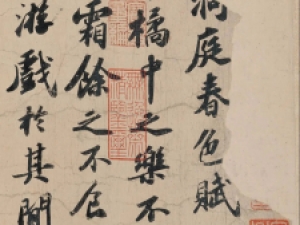 洞庭春色賦
橘中之樂不
霜餘之不食
游戲於其間